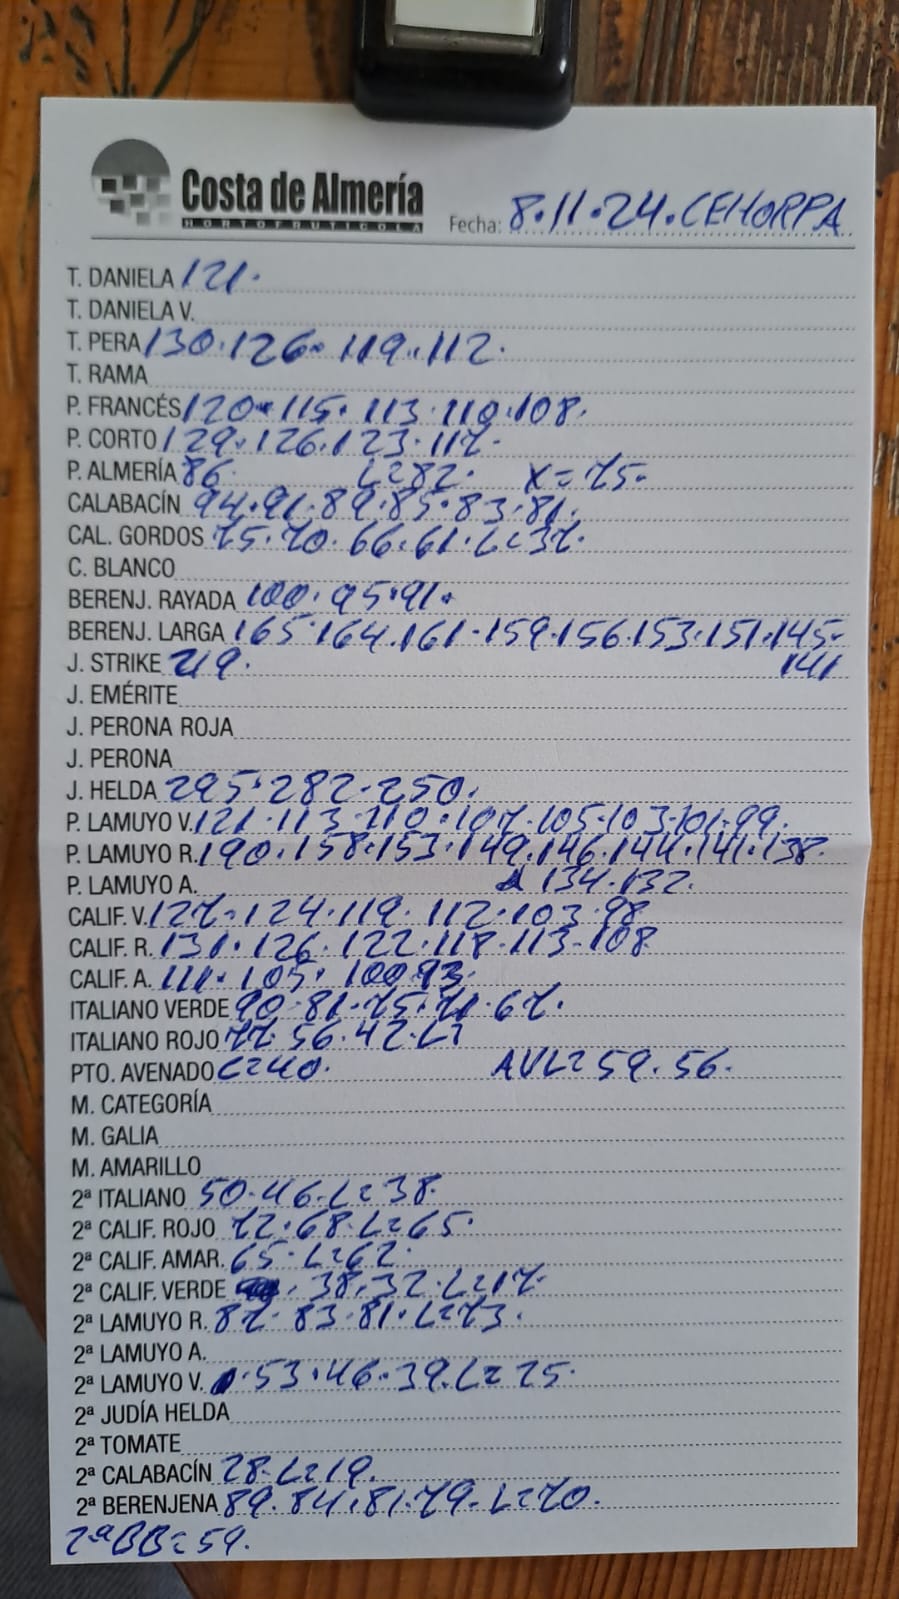 Costa de Almería
HORTOFRUTICOLA
Fecha: 8.11.24.CEHORPA
T. DANIELA 121.
T. DANIELA V.
T. PERA 130.126.119.112.
T. RAMA
P. FRANCÉS 120.115.113.110.108.
P. CORTO 129.126.123.117.
P. ALMERÍA 86 L=82. X=75.
CALABACÍN 94.91.89.85.83.81.
CAL. GORDOS 75.70.66.61.L=37.
C. BLANCO
BERENJ. RAYADA 100.95.91.
BERENJ. LARGA 165.164.161.159.156.153.151.145.
J. STRIKE 219. 141
J. EMÉRITE
J. PERONA ROJA
J. PERONA
J. HELDA 295.282.250.
P. LAMUYO V. 121.113.110.107.105.103.101.99.
P. LAMUYO R. 190.158.153.149.146.144.141.138.
P. LAMUYO A. 134.132.
CALIF. V. 127.124.119.112.103.98
CALIF. R. 131.126.122.118.113.108
CALIF. A. 111.105.100.93.
ITALIANO VERDE 90.81.75.71.67.
ITALIANO ROJO 77.56.42.
PTO. AVENADO C=40. AVL=59.56.
M. CATEGORÍA
M. GALIA
M. AMARILLO
2ª ITALIANO 50.46.L=38.
2ª CALIF. ROJO 72.68.L=65.
2ª CALIF. AMAR. 65.L=62.
2ª CALIF. VERDE 38.32.L=17.
2ª LAMUYO R. 87.83.81.L=73.
2ª LAMUYO A.
2ª LAMUYO V. 53.46.39.L=25.
2ª JUDÍA HELDA
2ª TOMATE
2ª CALABACÍN 28.L=19.
2ª BERENJENA 89.84.81.79.L=70.
2ªBB=59.